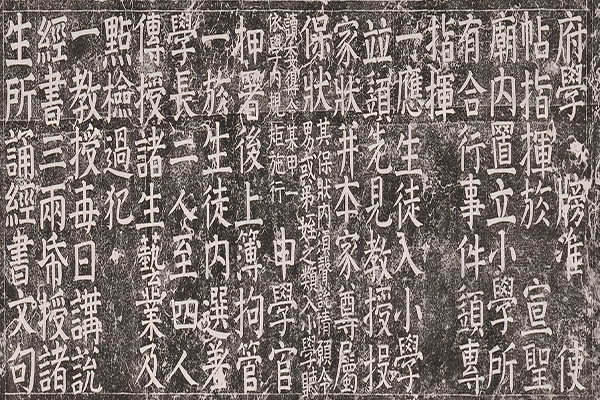 府學 牓准 使
帖指揮於 宣聖
廟内置立小學所
有合行事件須專
指揮
一應生徒入小學
並須先見教授投
家狀并本家尊屬
保狀 其保狀内須聲說情願令
男或弟姪之類入小學聽
讀委得令某甲一
依學内規矩施行 申學官
押署後上簿拘管
一於生徒内選差
學長二人至四人
傳授諸生藝業及
點檢過犯
一教授每日講說
經書三兩帋授諸
生所誦經書文句